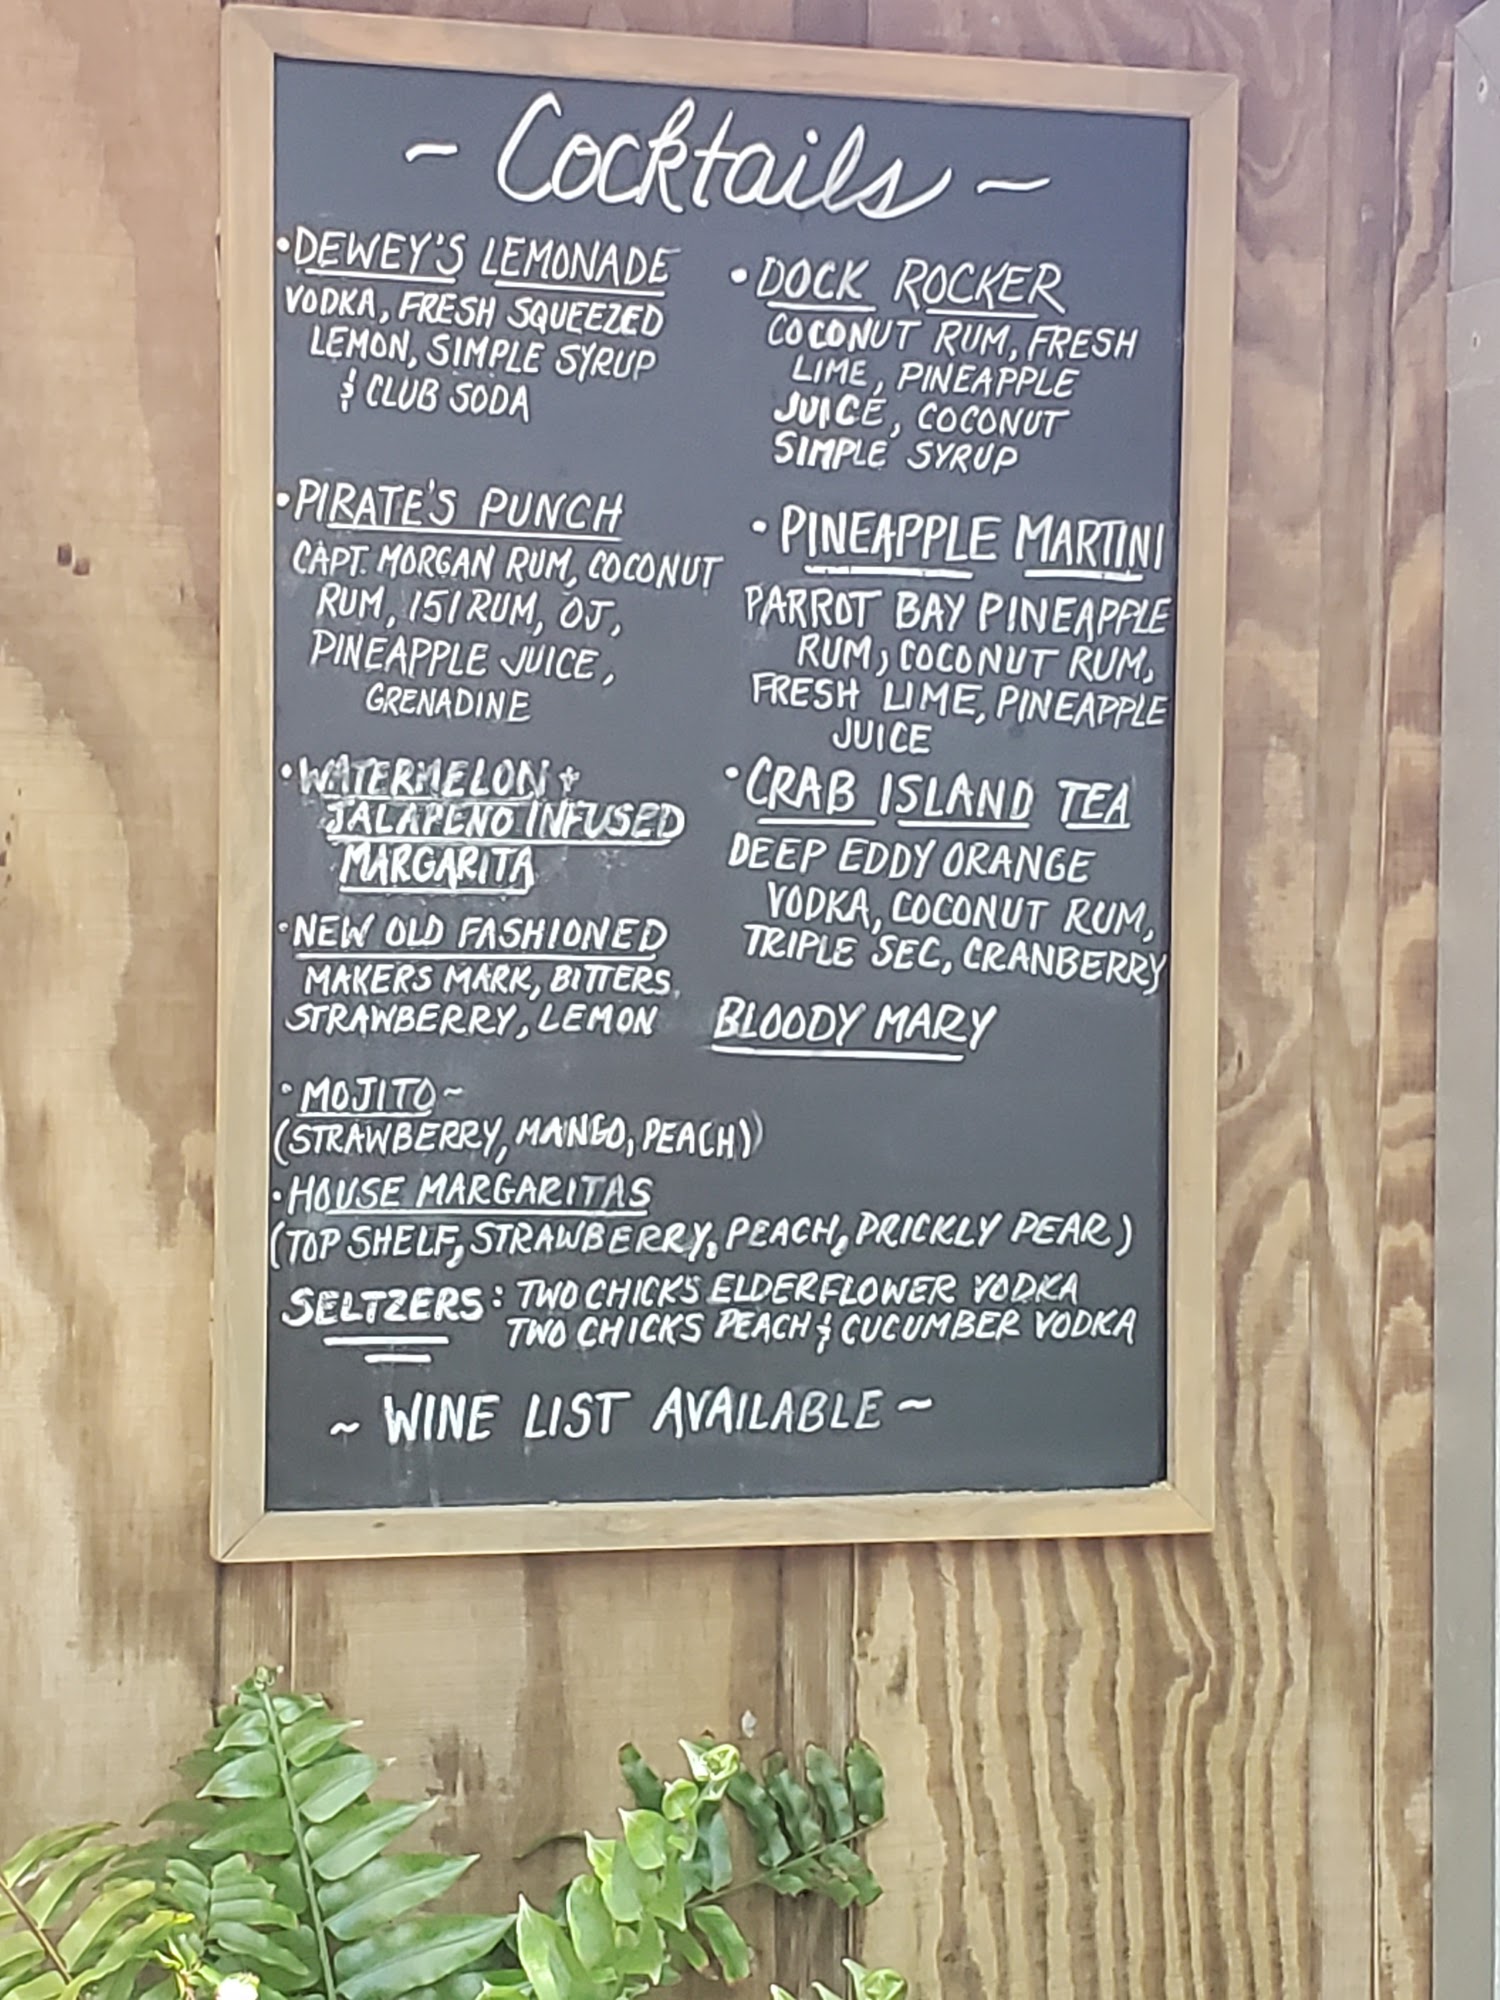 ~ Cocktails ~
• DEWEY'S LEMONADE
VODKA, FRESH SQUEEZED
LEMON, SIMPLE SYRUP
& CLUB SODA
• PIRATE'S PUNCH
CAPT. MORGAN RUM, COCONUT
RUM, 151 RUM, OJ,
PINEAPPLE JUICE,
GRENADINE
• WATERMELON +
JALAPENO INFUSED
MARGARITA
• NEW OLD FASHIONED
MAKERS MARK, BITTERS,
STRAWBERRY, LEMON
• DOCK ROCKER
COCONUT RUM, FRESH
LIME, PINEAPPLE
JUICE, COCONUT
SIMPLE SYRUP
• PINEAPPLE MARTINI
PARROT BAY PINEAPPLE
RUM, COCONUT RUM,
FRESH LIME, PINEAPPLE
JUICE
• CRAB ISLAND TEA
DEEP EDDY ORANGE
VODKA, COCONUT RUM,
TRIPLE SEC, CRANBERRY
BLOODY MARY
• MOJITO ~
(STRAWBERRY, MANGO, PEACH)
• HOUSE MARGARITAS
(TOP SHELF, STRAWBERRY, PEACH, PRICKLY PEAR)
SELTZERS: TWO CHICKS ELDERFLOWER VODKA
TWO CHICKS PEACH & CUCUMBER VODKA
~ WINE LIST AVAILABLE ~